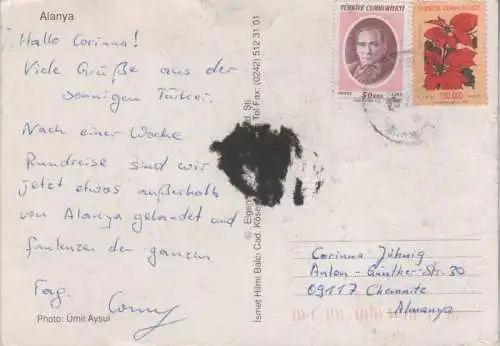 Alanya
Hallo Corinna!
Viele Grüße aus der
sonnigen Türkei.
Nach einer Woche
Rundreise sind wir
jetzt etwas außerhalb
von Alanya gelandet und
faulenzen den ganzen
Tag.
Photo: Ümit Aysul
İsmet Hilmi Balcı Cad. Köse Tel Fax: (0242) 512 31 01
TÜRKİYE CUMHURİYETİ
50 000
LİRA
TÜRKİYE CUMHURİYETİ
Corinna Jähnig
Anton-Günther-Str. 30
09117 Chemnitz
Almanya